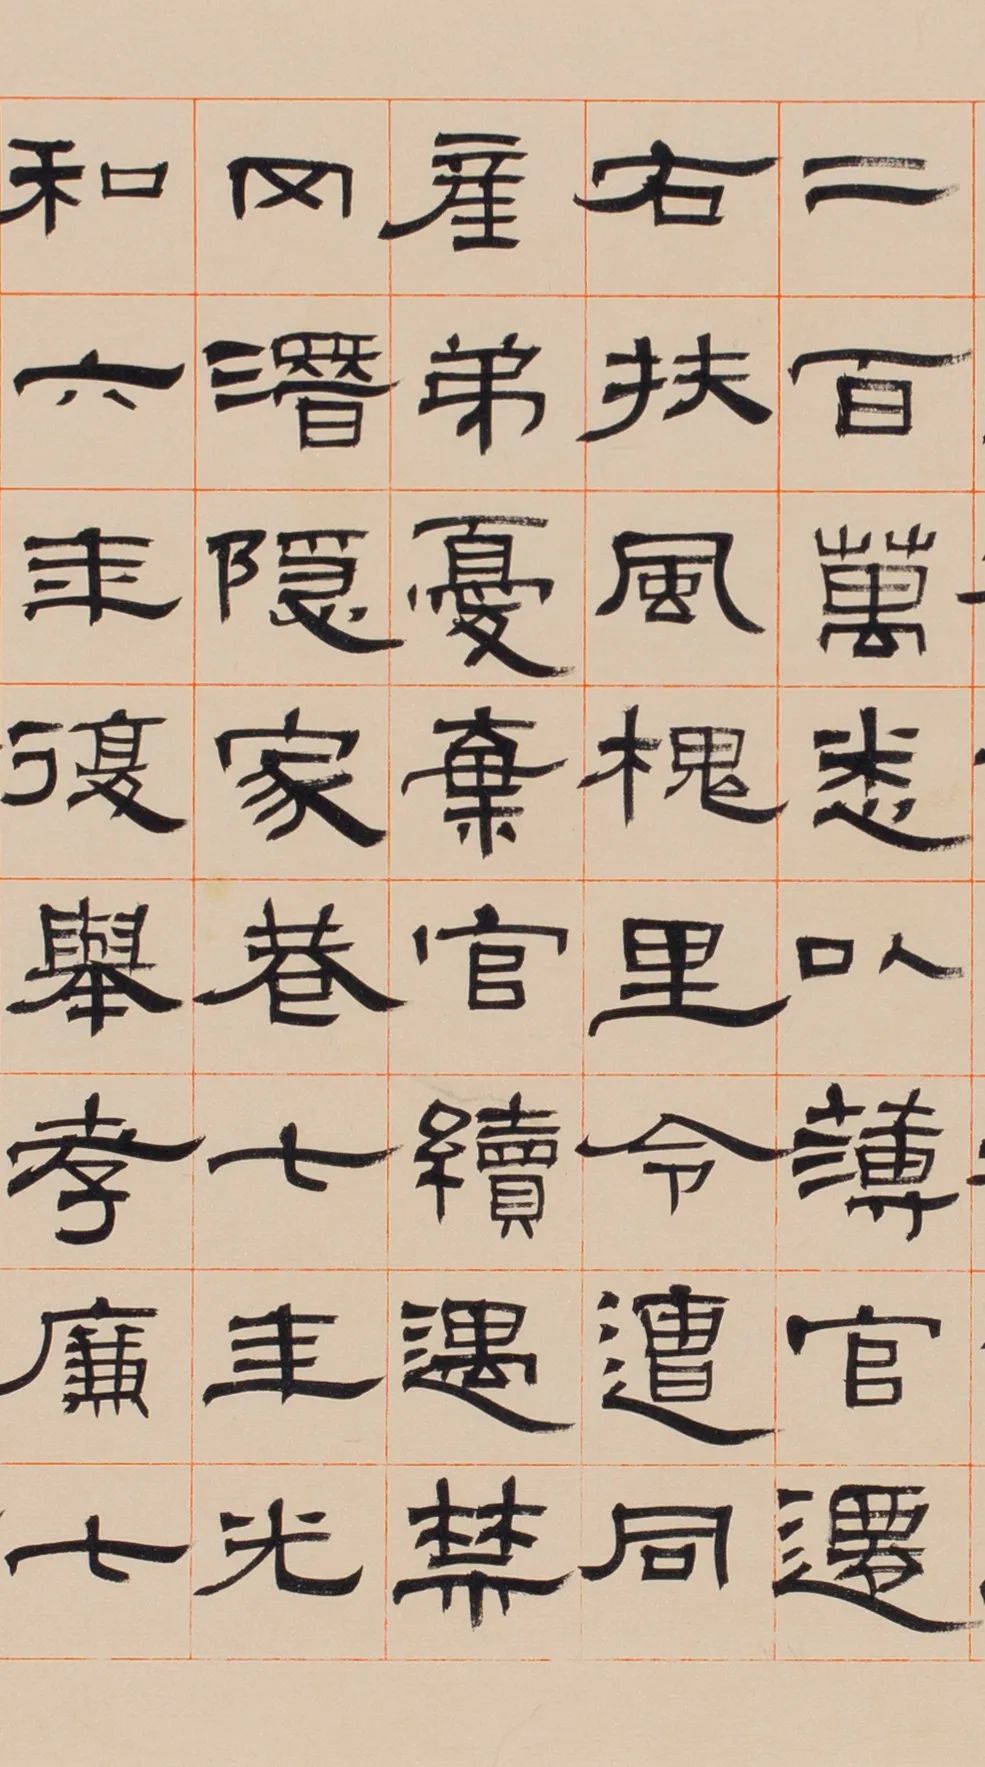 二百萬悉以薄官遷
右扶風槐里令遭同
產弟憂棄官續遇禁
冈潛隱家巷七年光
和六年復舉孝廉七